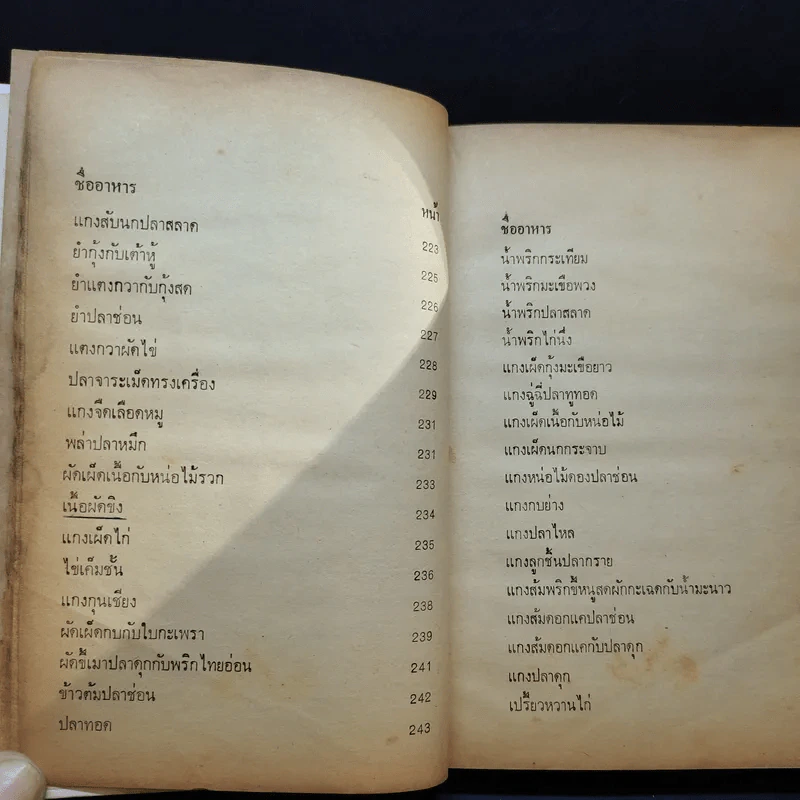 ชื่ออาหาร หน้า
แกงสับนกปลาสลาด 223
ยำกุ้งกับเต้าหู้ 225
ยำแตงกวากับกุ้งสด 226
ยำปลาช่อน 227
แตงกวาผัดไข่ 228
ปลาจาระเม็ดทรงเครื่อง 229
แกงจืดเลือดหมู 231
พล่าปลาหมึก 231
ผัดเผ็ดเนื้อกับหน่อไม้รวก 233
เนื้อผัดขิง 234
แกงเผ็ดไก่ 235
ไข่เค็มชั้น 236
แกงกุนเชียง 238
ผัดเผ็ดกบกับใบกะเพรา 239
ผัดขี้เมาปลาดุกกับพริกไทยอ่อน 241
ข้าวต้มปลาช่อน 242
ปลาทอด 243
ชื่ออาหาร
น้ำพริกกระเทียม
น้ำพริกมะเขือพวง
น้ำพริกปลาสลาด
น้ำพริกไก่นึ่ง
แกงเผ็ดกุ้งมะเขือยาว
แกงฉู่ฉี่ปลาทูทอด
แกงเผ็ดเนื้อกับหน่อไม้
แกงเผ็ดนกกระจาบ
แกงหน่อไม้ดองปลาช่อน
แกงกบย่าง
แกงปลาไหล
แกงลูกชิ้นปลากราย
แกงส้มพริกขี้หนูสดผักกะเฉดกับน้ำมะนาว
แกงส้มดอกแคปลาช่อน
แกงส้มดอกแคกับปลาดุก
แกงปลาดุก
เปรี้ยวหวานไก่